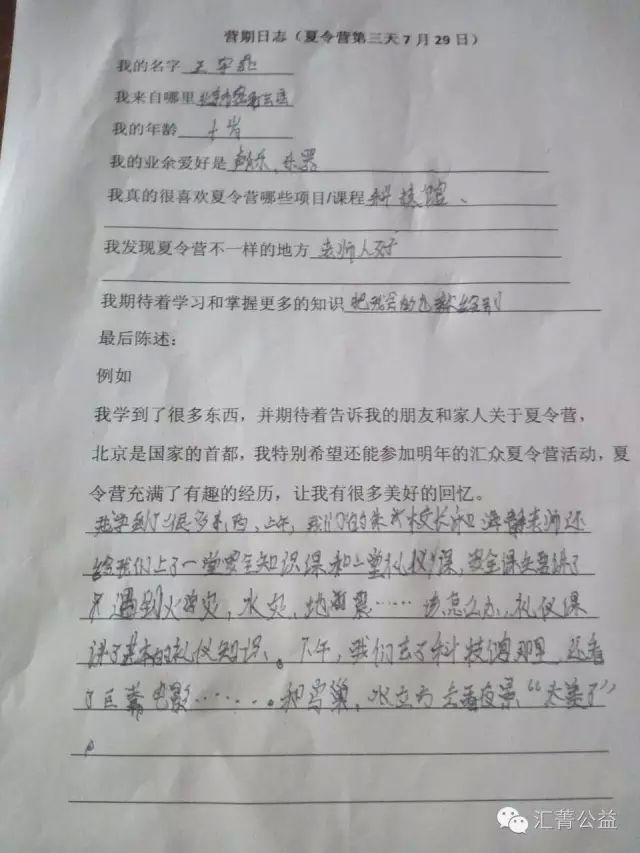 营期日志（夏令营第三天7月29日）
我的名字 王宇
我来自哪里 北京市密云
我的年龄 十岁
我的业余爱好是 声乐、乐器
我真的很喜欢夏令营哪些项目/课程 科技馆、
我发现夏令营不一样的地方 老师人好
我期待着学习和掌握更多的知识 把我会的
最后陈述：
例如
我学到了很多东西，并期待着告诉我的朋友和家人关于夏令营，
北京是国家的首都，我特别希望还能参加明年的汇众夏令营活动，夏
令营充满了有趣的经历，让我有很多美好的回忆。
我学到了很多东西、上午，我们的朱校长和老师还
给我们上了一堂安全知识课和一堂礼仪课，安全课主要讲了
遇到火灾，水灾，地震……该怎么办，礼仪课
讲了基本的礼仪知识、。下午，我们去了科技馆那里，还看
了巨幕电影……。和鸟巢，水立方去看夜景“太美了”
。
汇菁公益